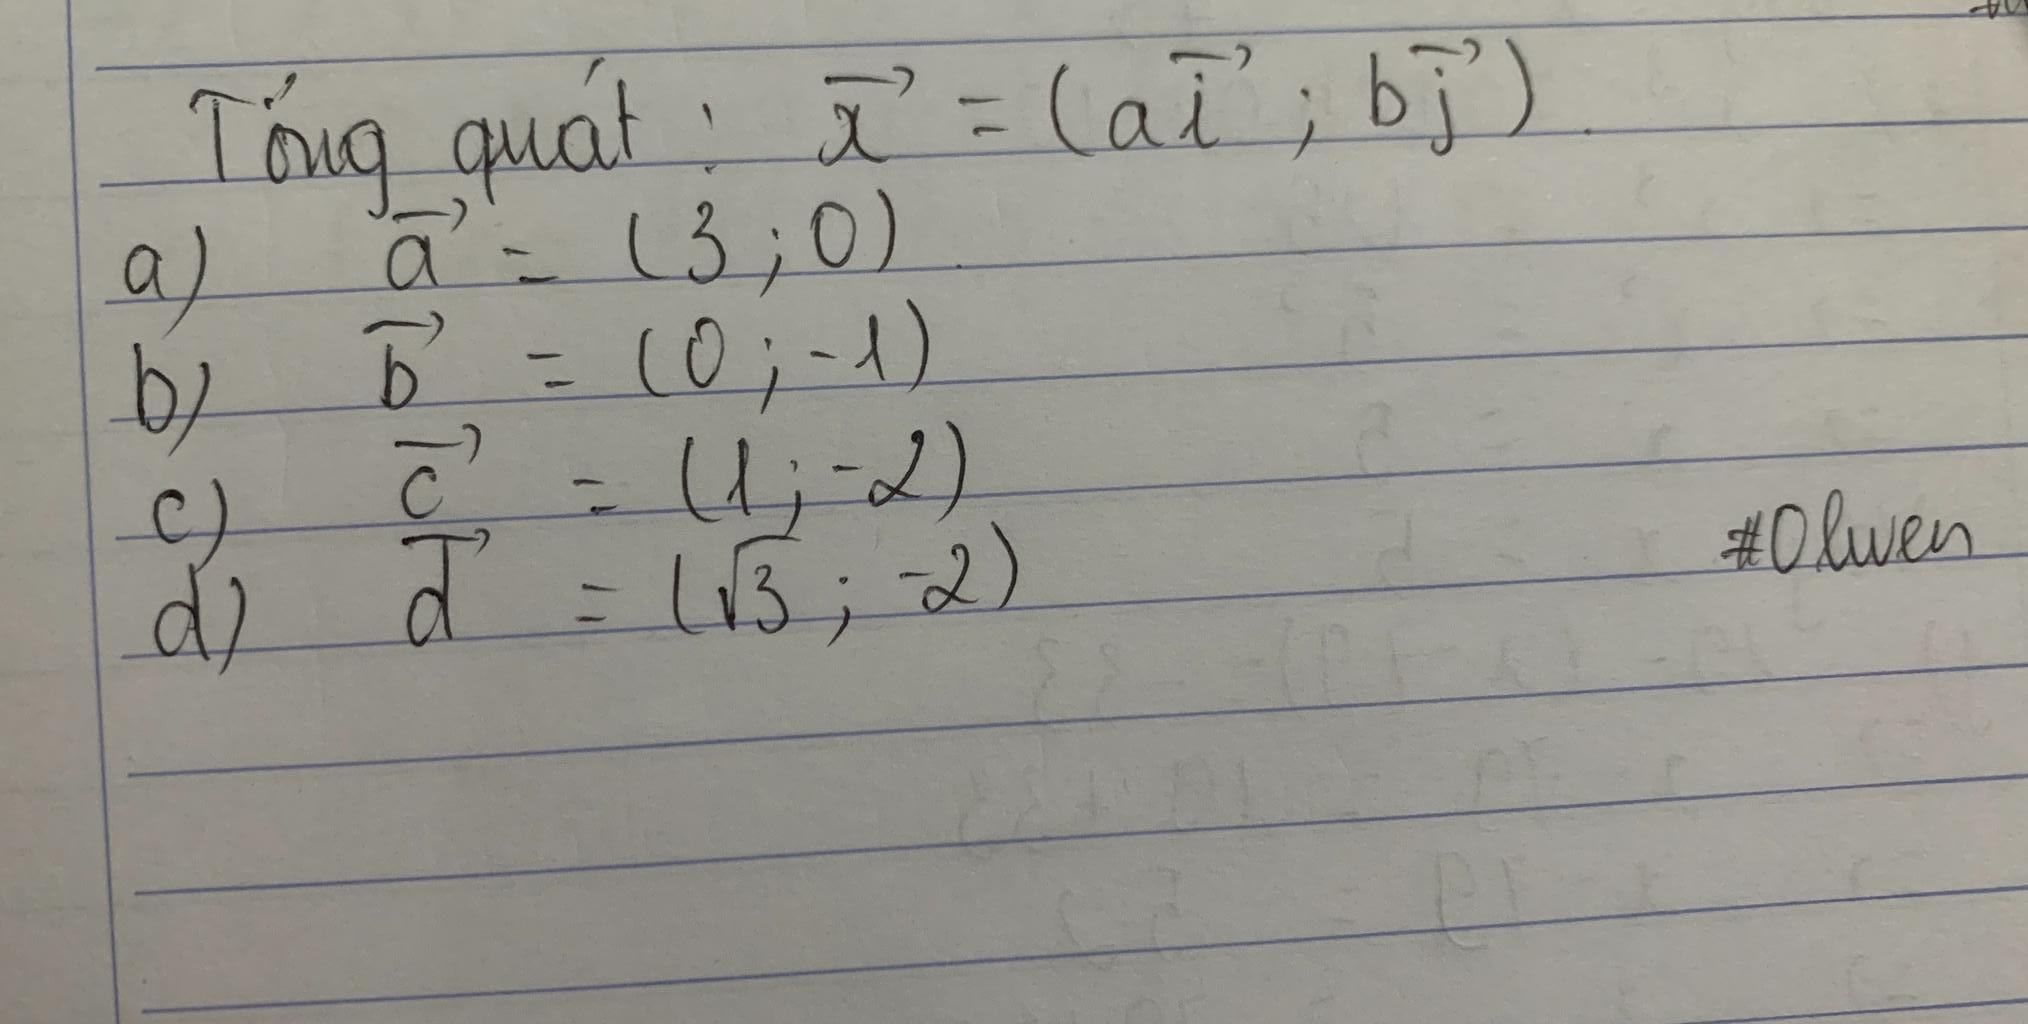 Tổng quát : x⃗ = (ai⃗ ; bj⃗).
a) a⃗ = (3 ; 0).
b) b⃗ = (0 ; -1)
c) c⃗ = (1 ; -2)
d) d⃗ = (√3 ; -2)
#Olwen